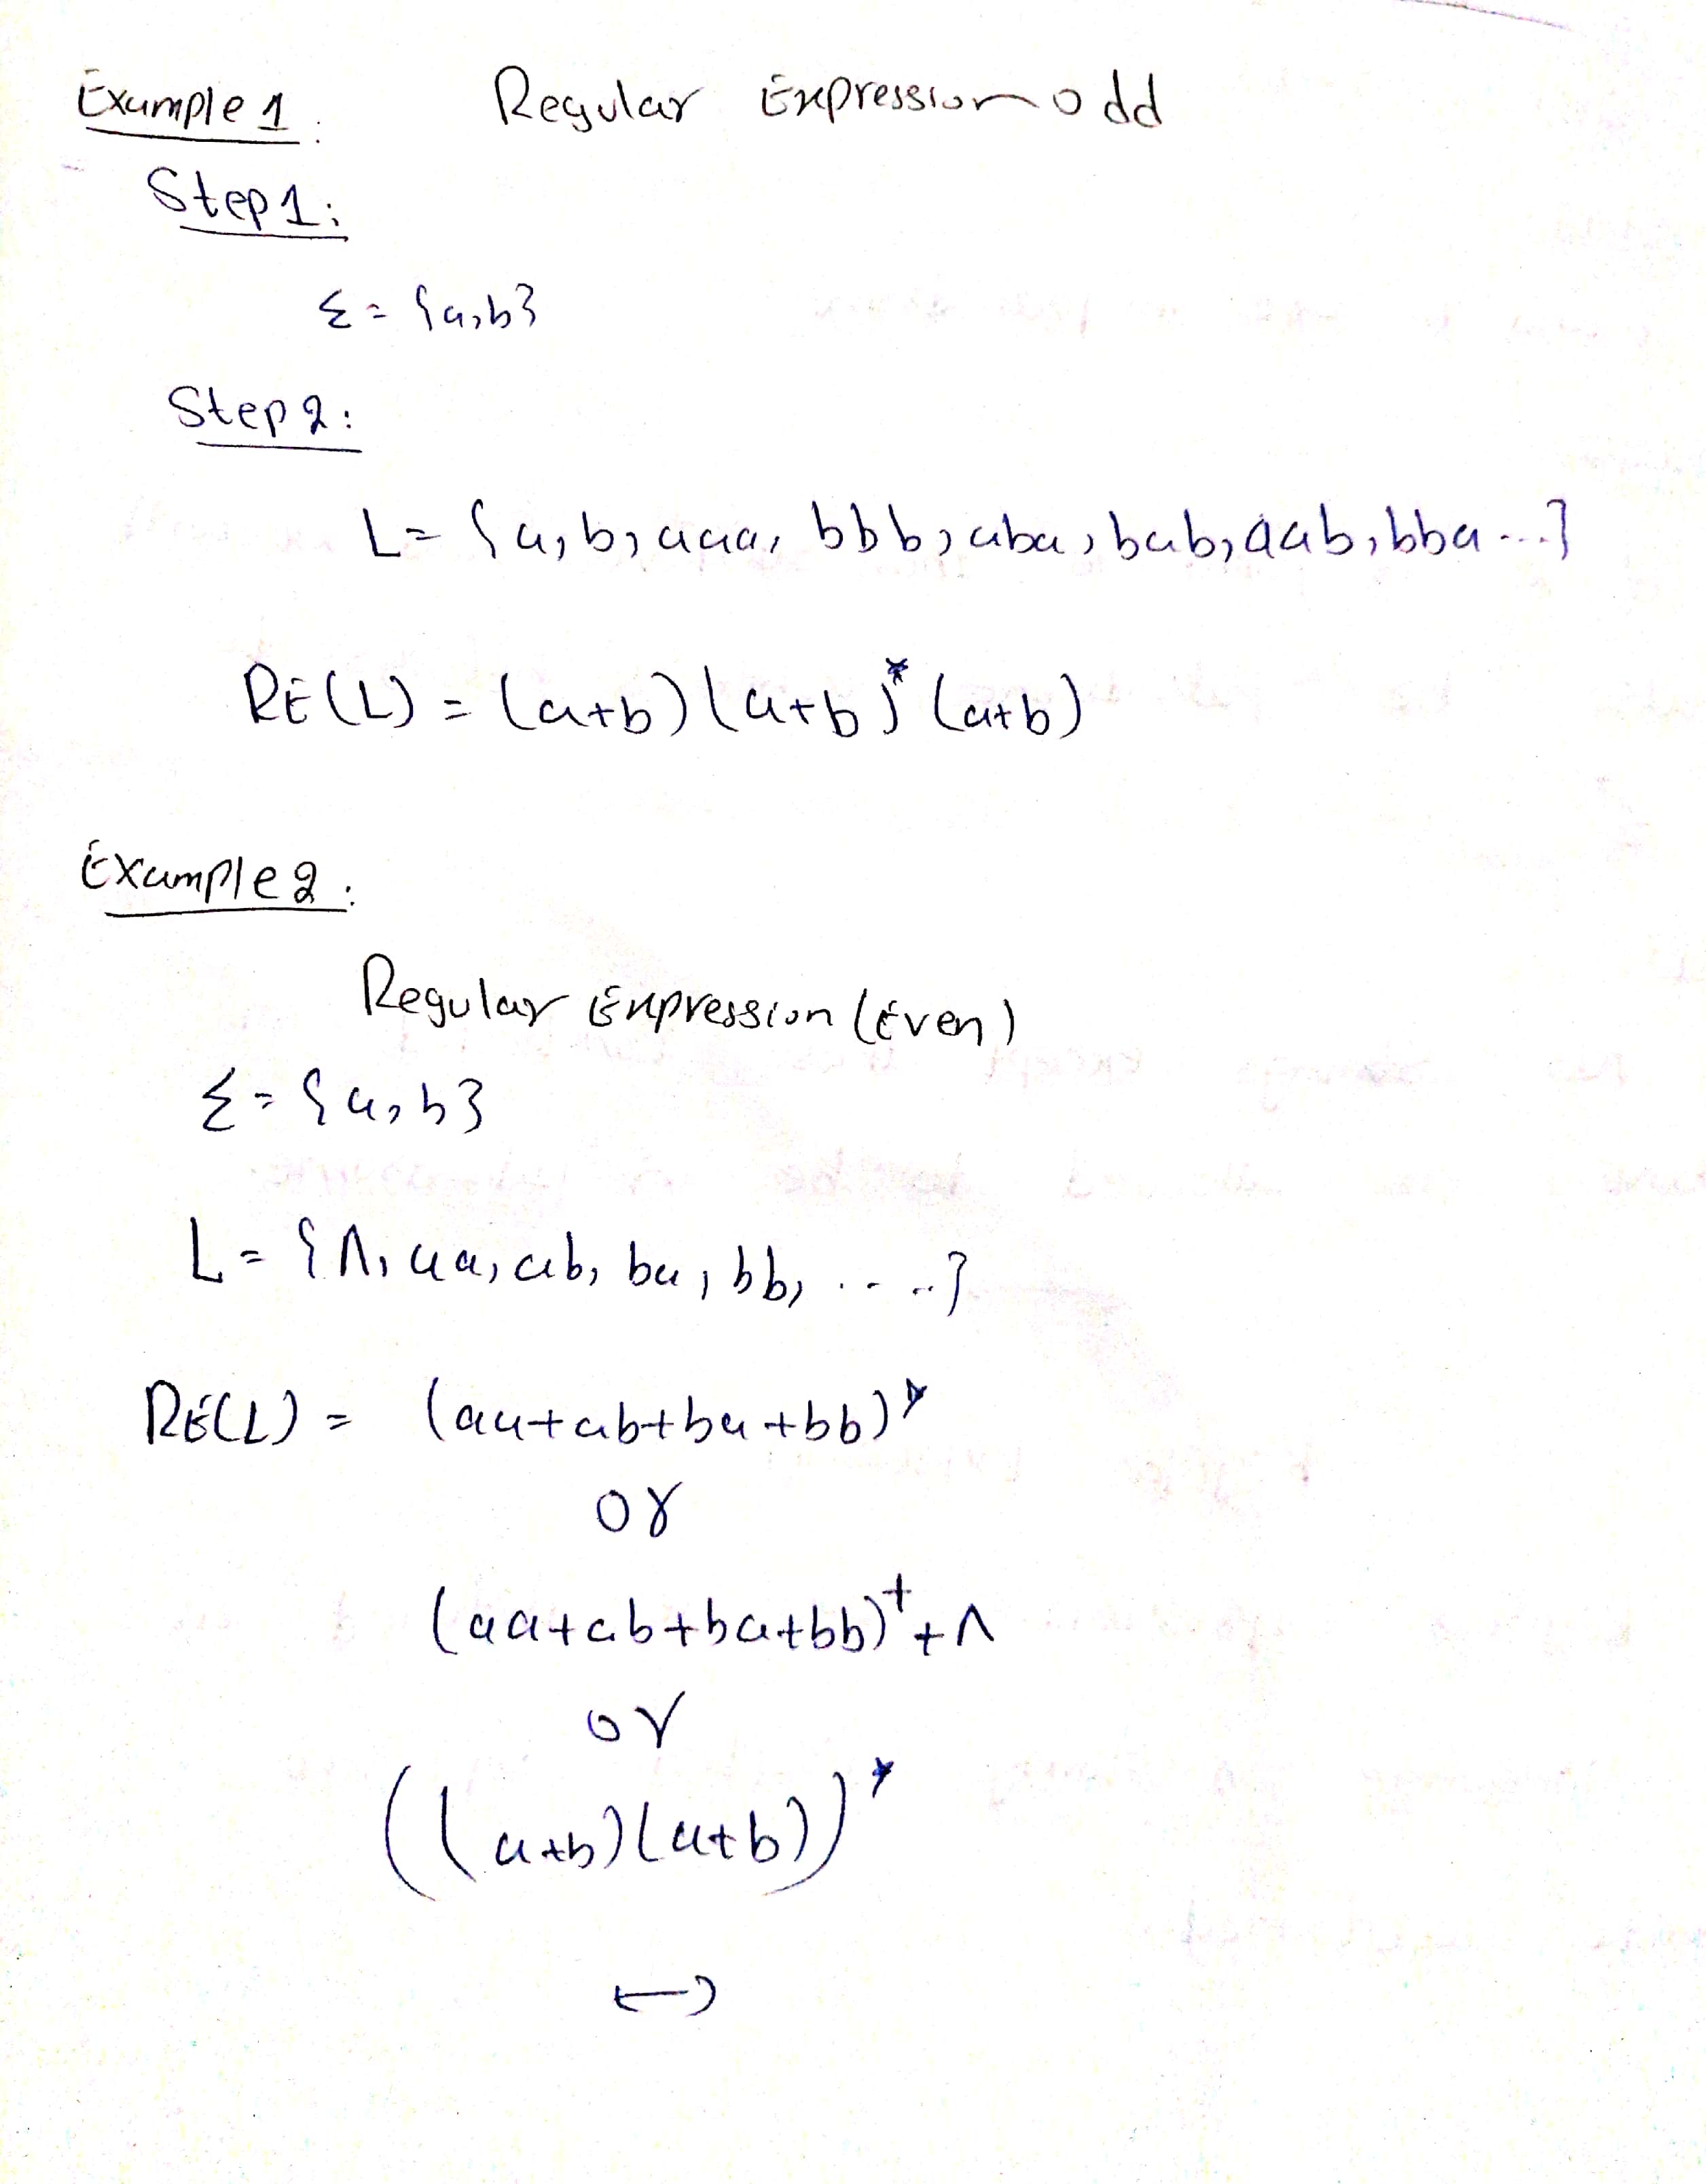 Example 1. Regular Expression odd
Step 1:
Σ = {a,b}
Step 2:
L = {a, b, aaa, bbb, aba, bab, aab, bba ...}
RE(L) = (a+b) (a+b)* (a+b)
Example 2:
Regular Expression (Even)
Σ = {a, b}
L = {Λ, aa, ab, ba, bb, .....}
RE(L) = (aa+ab+ba+bb)*
or
(aa+ab+ba+bb)⁺+Λ
or
((a+b)(a+b))*